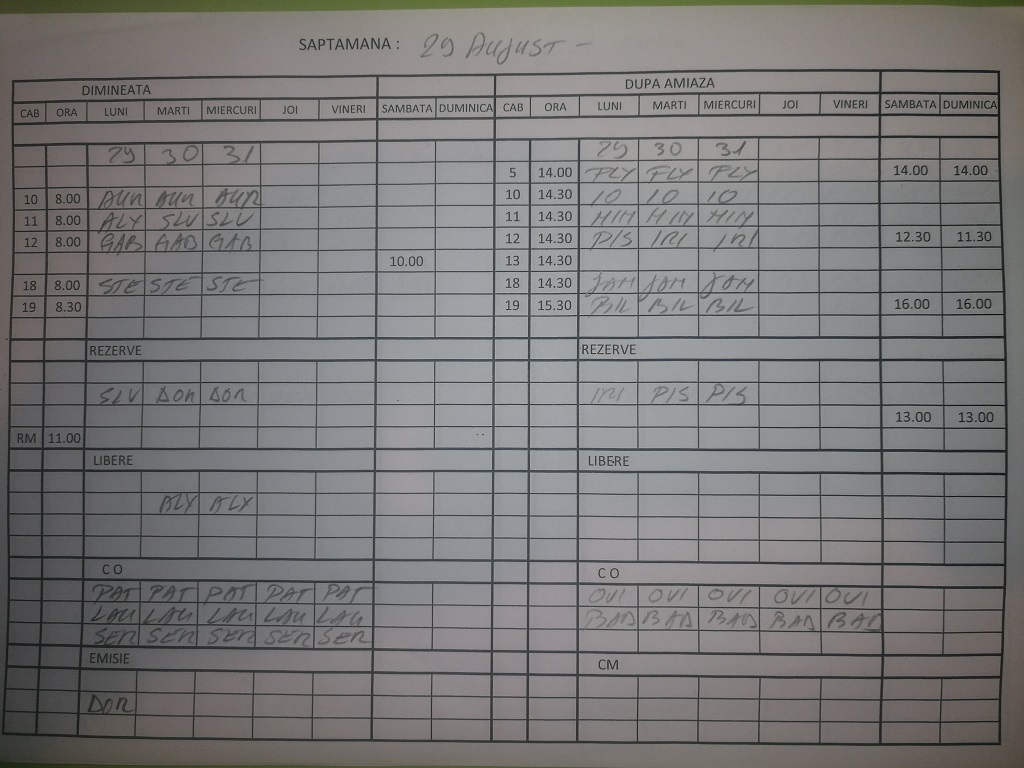 SAPTAMANA : 29 August -
DIMINEATA DUPA AMIAZA
CAB ORA LUNI MARTI MIERCURI JOI VINERI SAMBATA DUMINICA CAB ORA LUNI MARTI MIERCURI JOI VINERI SAMBATA DUMINICA
29 30 31 29 30 31
5 14.00 FLY FLY FLY 14.00 14.00
10 8.00 AUR AUR AUR 10 14.30 IO IO IO
11 8.00 ALY SLV SLV 11 14.30 MIM MIM MIM
12 8.00 GAB GAB GAB 12 14.30 PIS IRI IRI 12.30 11.30
10.00 13 14.30
18 8.00 STE STE STE 18 14.30 JAM JAM JAM
19 8.30 19 15.30 BIL BIL BIL 16.00 16.00
REZERVE REZERVE
SLV DOR DOR IRI PIS PIS
13.00 13.00
RM 11.00
LIBERE LIBERE
ALY ALY
C O C O
PAT PAT PAT PAT PAT OVI OVI OVI OVI OVI
LAU LAU LAU LAU LAU BAD BAD BAD BAD BAD
SER SER SER SER SER
EMISIE CM
DOR